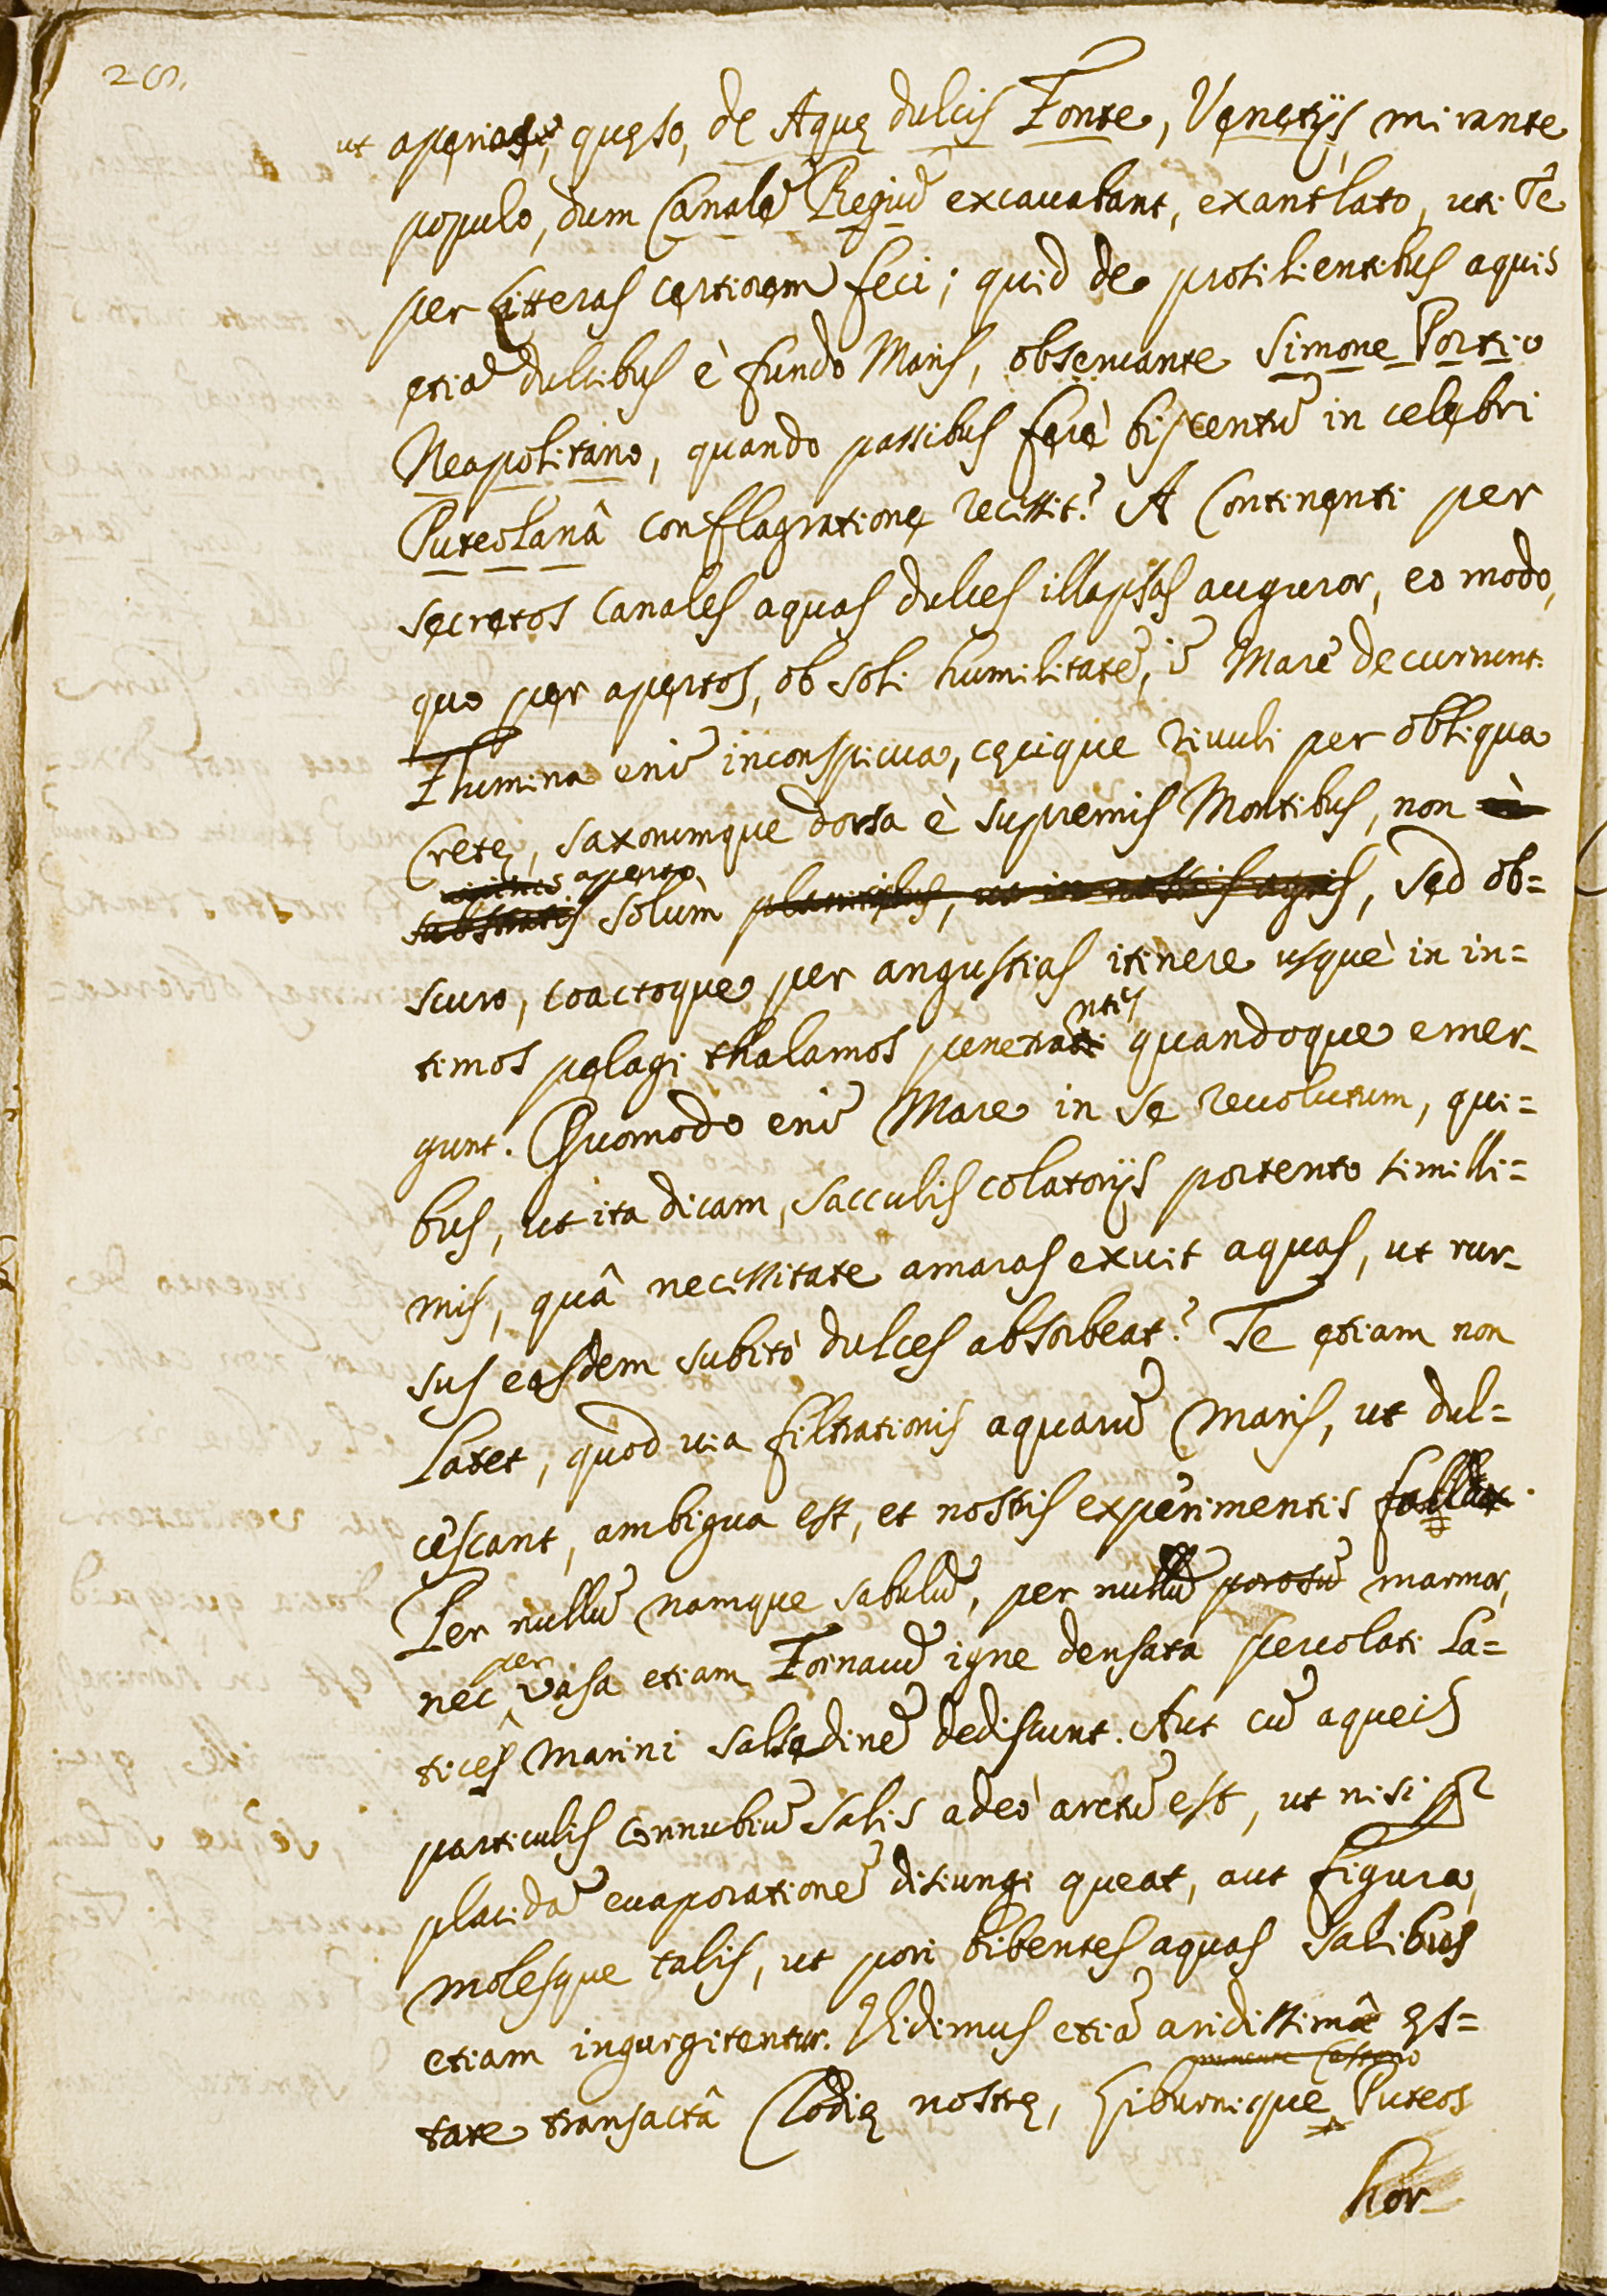 26.
ut aperias, quęso, de Aquę dulcis Fonte, Venetijs, mirante
populo, dum Canalē Regiū excauabant, exantlato, uti Te
per Litteras certiorem feci; quid de prosilientibus aquis
etiā dulcibus è fundo Maris, obseruante Simone Portio
Neapolitano, quando passibus ferè biscentū in celebri
Puteolanâ conflagratione recessit? A Continenti per
secretos Canales aquas dulces illapsas auguror, eo modo,
quo per apertos, ob soli humilitatē, ī Mare decurrunt.
Flumina enī inconspicua, cęcique riuuli per obliqua
Cretę, saxorumque dorsa è supremis Montibus, non
aperto
solùm , sed ob=
scuro, coactoque per angustias itinere usquè in in=
timos pelagi thalamos penetrantes quandoque emer-
gunt. Quomodo enī Mare in se reuolutum, qui=
bus, ut ita dicam, sacculis colatorijs portento simillI=
mis, quâ necessitate amaras exuit aquas, ut rur-
sus easdem subitò dulces absorbeat? Te etiam non
Latet, quod uia filtrationis aquarū Maris, ut dul=
cescant, ambigua est, et nostris experimentis fallax.
Per nullū namque sabulū, per nullū porosū marmor,
per
nec vasa etiam Fornacū igne densata percolati La=
tices Marini salsedinē dediscunt. Aut cū aqueis
particulis connubiū salis adeò arctū est, ut nisi per
placidā euaporationē disiungi queat, aut figura,
molesque talis, ut pori bibentes aquas salibus
etiam ingurgitentur. Vidimus etiā aridissimâ Ęs=
tate transactâ Clodię nostrę, Liburnique Puteos
hor-